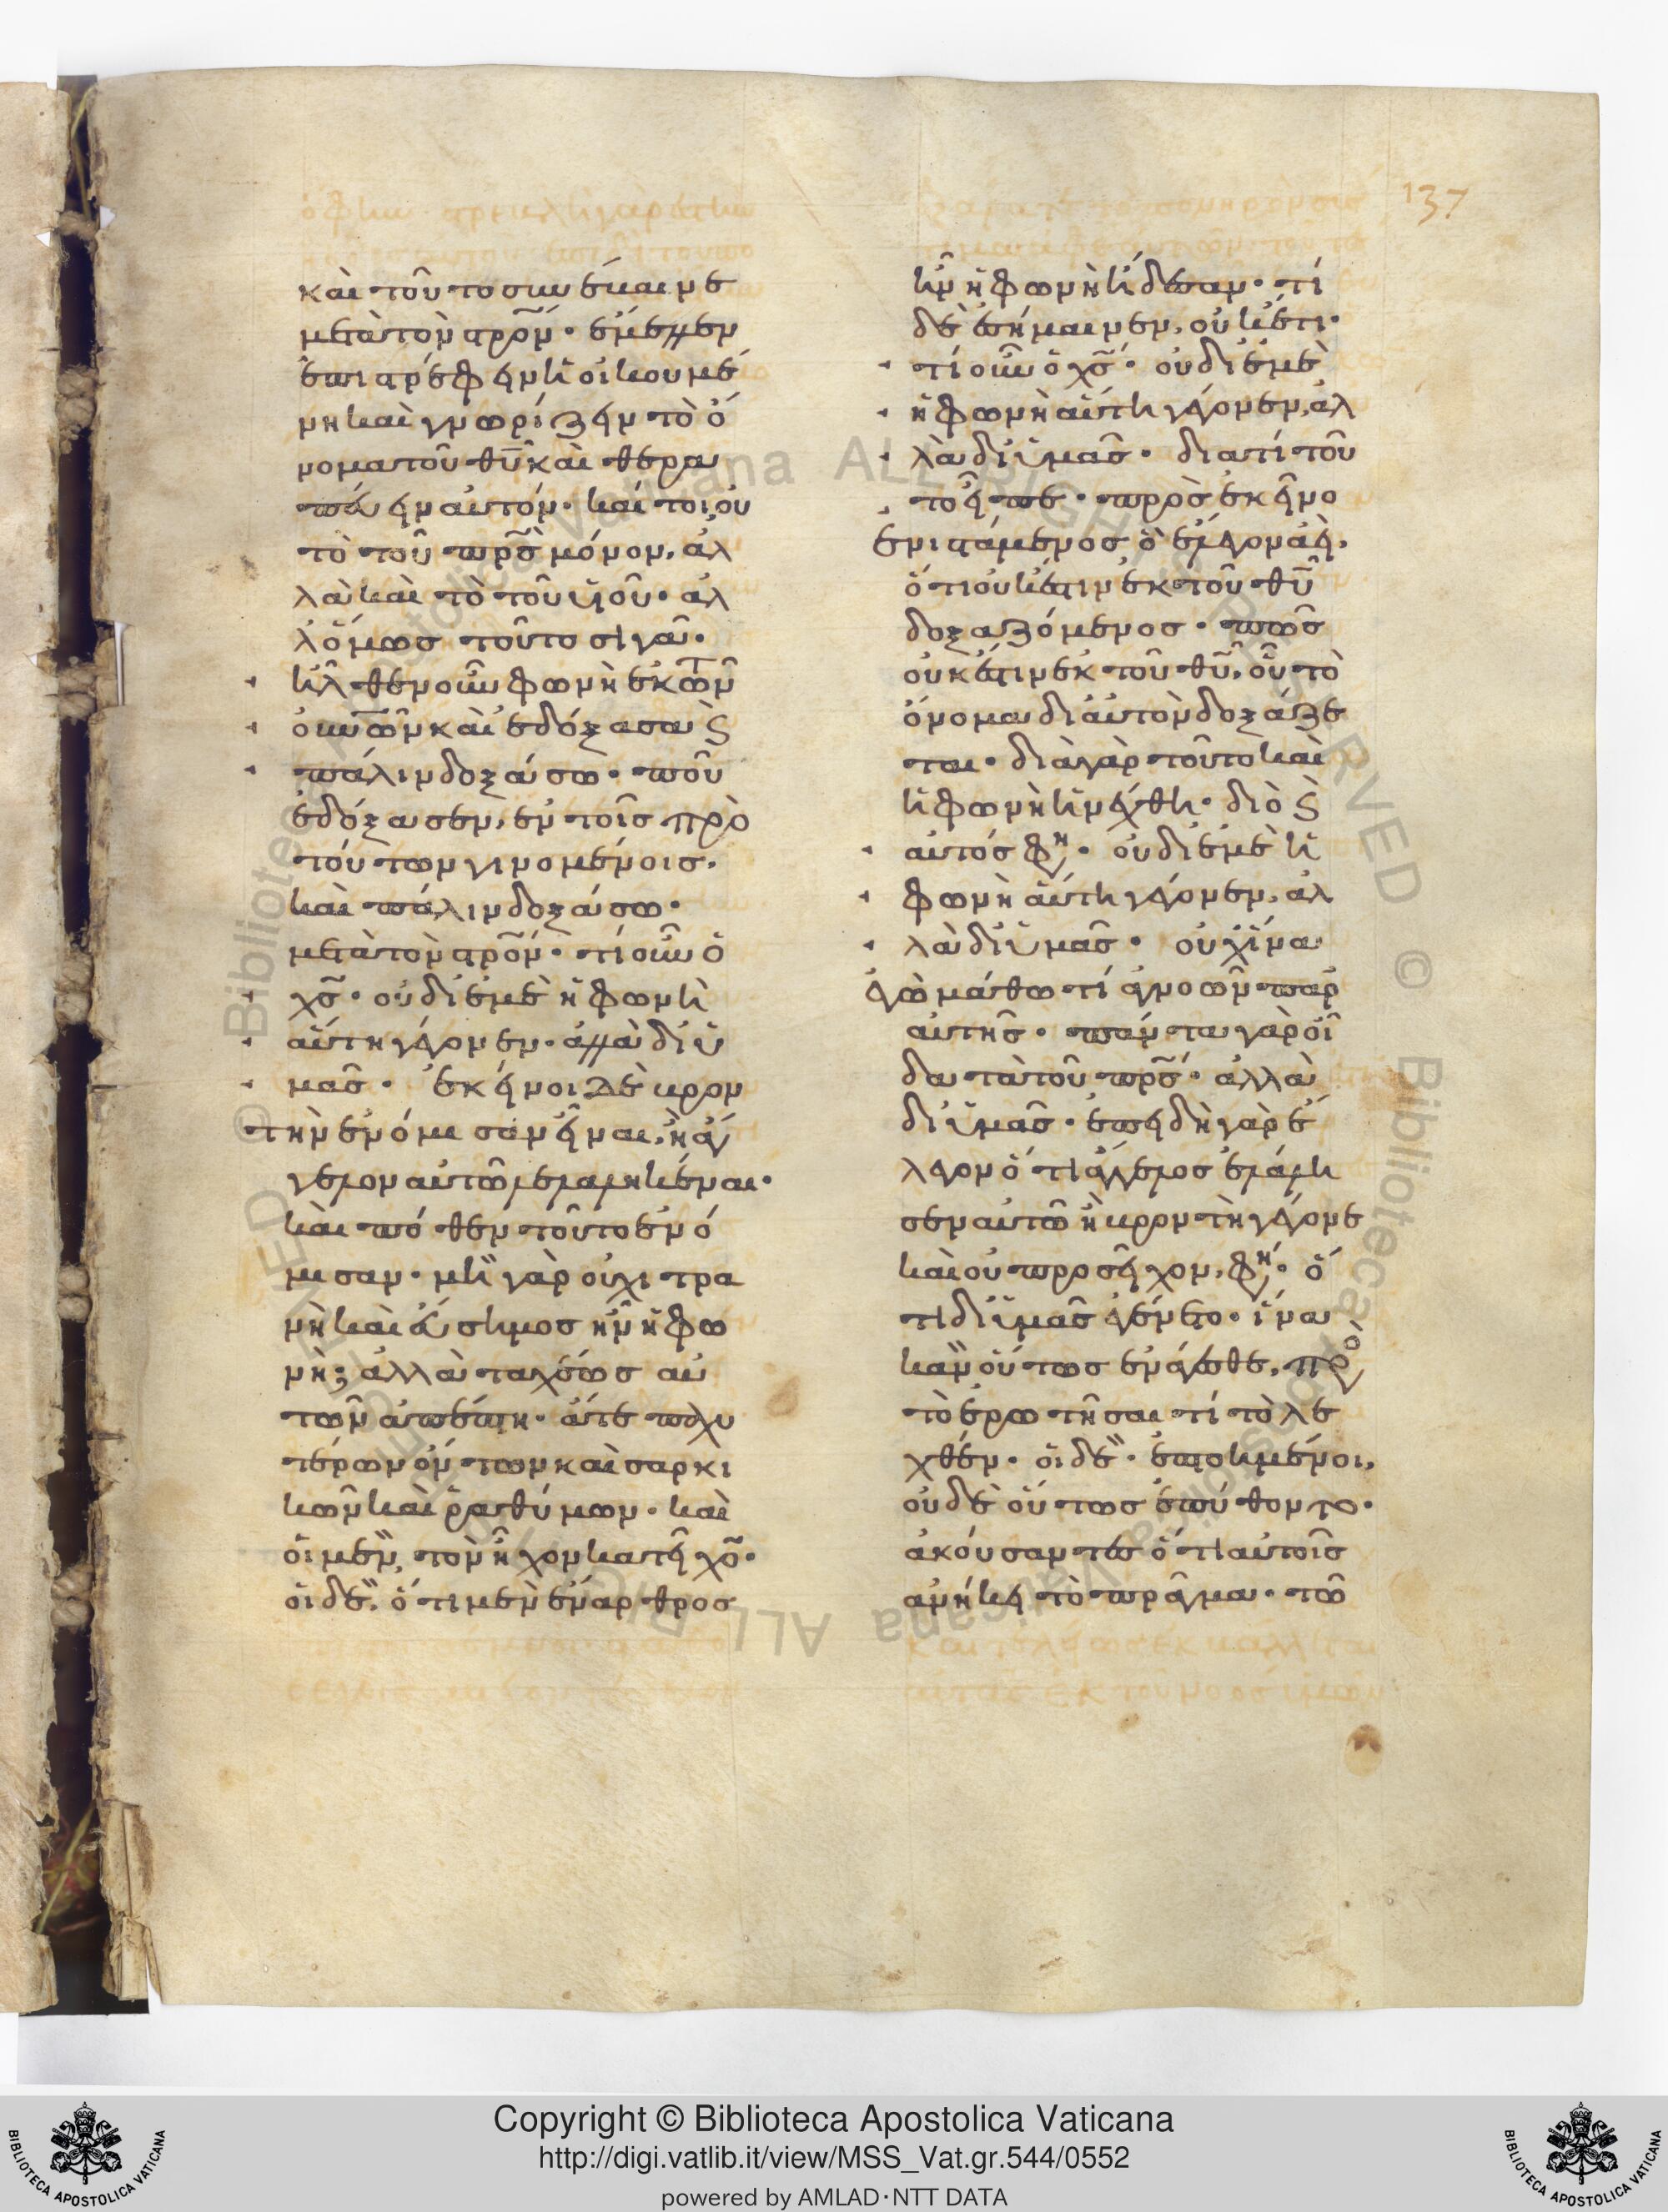 137
καὶ τοῦτο σιω εκαιμε
μετὰ τὸν στρον· ἔμελλεν
ἐπιστρέφειν ἡ οἰκουμέ
νη καὶ γνωρίζειν τὸ ὄ
νομα τοῦ θυ καὶ θερα
πεύειν αὐτόν· καίτοι οὐ
τὸ τοῦ πρς μόνον, ἀλ
λὰ καὶ τὸ τοῦ υἱοῦ· ἀλ
λ ὅμως τοῦτο σιγᾶ·
ἦλθεν οὖν φωνὴ ἐκ τῶν
οὐνῶν καὶ ἐδόξασα ϛ
πάλιν δοξάσω· ποῦ
ἐδόξασεν, ἐν τοῖς πρὸ
τούτων γινομένοις,
καὶ πάλιν δοξάσω·
μετὰ τὸν στρον· τί οὖν ὁ
χς· οὐ δι ἐμὲ ἡ φωνὴ
αὕτη γέγονεν· ἀλλὰ δι ὑ
μᾶς· ἐκεῖνοι δὲ βρον
τὴν ἐνόμισαν εἶναι, ἢ ἄγ
γελον αὐτῶ λελαληκέναι·
καὶ πόθεν τοῦτο ἐνό
μισαν· μὴ γὰρ οὐχὶ τρα
νὴ καὶ εὔσημος ἦν ἡ φω
νή; ἀλλὰ ταχέως αὐ
τῶν ἀπέπτη· ἅτε παχυ
τέρων ὄντων καὶ σαρκι
κῶν καὶ ῥαθύμων· καὶ
οἱ μὲν, τὸν ἦχον κατεῖχον·
οἱ δὲ, ὅτι μὲν ἔναρθρος
ἦν ἡ φωνὴ ἤδεσαν· τί
δὲ ἐσήμαινεν, οὐκέτι·
τί οὖν ὁ χς· οὐ δι ἐμὲ
ἡ φωνὴ αὕτη γέγονεν, ἀλ
λὰ δι ὑμᾶς· διατί τοῦ
το εἶπε· πρὸς ἐκεῖνο
ἐνιστάμενος ὃ ἔλεγον ἀεὶ,
ὅτι οὐκ ἔστιν ἐκ τοῦ θυ
δοξαζόμενος· πῶς
οὐκ ἔστιν ἐκ τοῦ θυ, οὗ τὸ
ὄνομα δι αὐτὸν δοξάζε
ται· διὰ γὰρ τοῦτο καὶ
ἡ φωνὴ ἠνέχθη· διὸ ϛ
αὐτός φη· οὐ δι ἐμὲ ἡ
φωνὴ αὕτη γέγονεν, ἀλ
λὰ δι ὑμᾶς· οὐχ ἵνα
ἐγὼ μάθω τί ἀγνοῶν παρ
αὐτῆς· πάντα γὰρ οἶ
δα τὰ τοῦ πρς· ἀλλὰ
δι ὑμᾶς· ἐπειδὴ γὰρ ἔ
λεγον ὅτι ἄγγελος ἐλάλη
σεν αὐτῶ ἢ βροντὴ γέγονε
καὶ οὐ προσεῖχον, φη· ὅ
τι δι ὑμᾶς ἐγένετο· ἵνα
κἂν οὕτως ἐνάχθητε, πρὸ
τὸ ἐρωτῆσαι τί τὸ λε
χθέν· οἱ δὲ ἐπτοημένοι,
οὐδὲ οὕτως ἐπύθοντο·
ἀκούσαντες ὅτι αὐτοῖς
ἀνήκει τὸ πρᾶγμα· τῶ
Copyright © Biblioteca Apostolica Vaticana
http://digi.vatlib.it/view/MSS_Vat.gr.544/0552
powered by AMLAD·NTT DATA
BIBLIOTECA APOSTOLICA VATICANA
BIBLIOTECA APOSTOLICA VATICANA